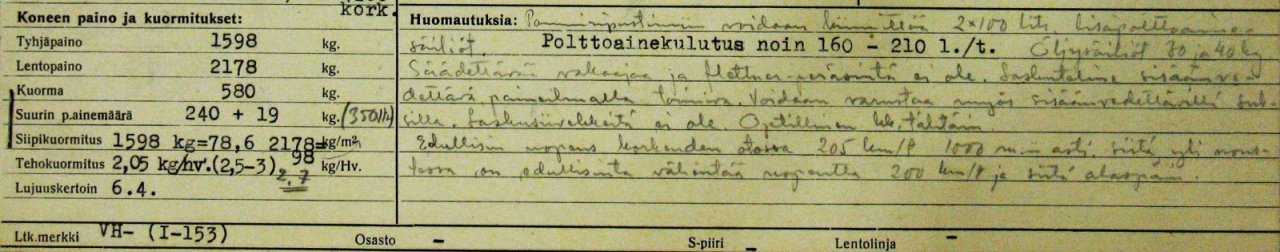 kork.
Koneen paino ja kuormitukset:
Tyhjäpaino 1598 kg.
Lentopaino 2178 kg.
Kuorma 580 kg.
Suurin p.ainemäärä 240 + 19 kg. (350 ltr)
Siipikuormitus 1598 kg=78,6 2178= kg/m²
98
Tehokuormitus 2,05 kg/hv.(2,5-3) kg/Hv.
2,7
Lujuuskertoin 6.4.
Huomautuksia: voidaan kiinnittää 2x100 ltr. lisäpolttoaine-
säiliöt. Polttoainekulutus noin 160 - 210 l./t. Öljysäiliöt 70 ja 40 kg
Säädettävää vakaajaa ja flettner-peräsintä ei ole. Laskuteline sisäänve-
dettävä, paineilmalla toimiva. Voidaan varustaa myös sisäänvedettävillä suk-
silla. Laskusiivekkeitä ei ole Optillinen kk. tähtäin.
Edullisin nopeus korkeuden otossa 205 km/t 1000 m:n asti, siitä yli nous-
tessa on edullisinta vähentää nopeutta 200 km/t ja siitä alaspäin.
Ltk.merkki VH- (I-153) Osasto - S-piiri - Lentolinja -